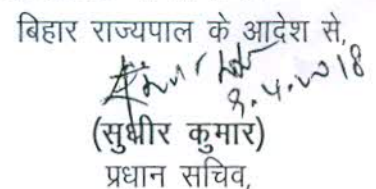 बिहार राज्यपाल के आदेश से,
9.4.2018
(सुधीर कुमार)
प्रधान सचिव,